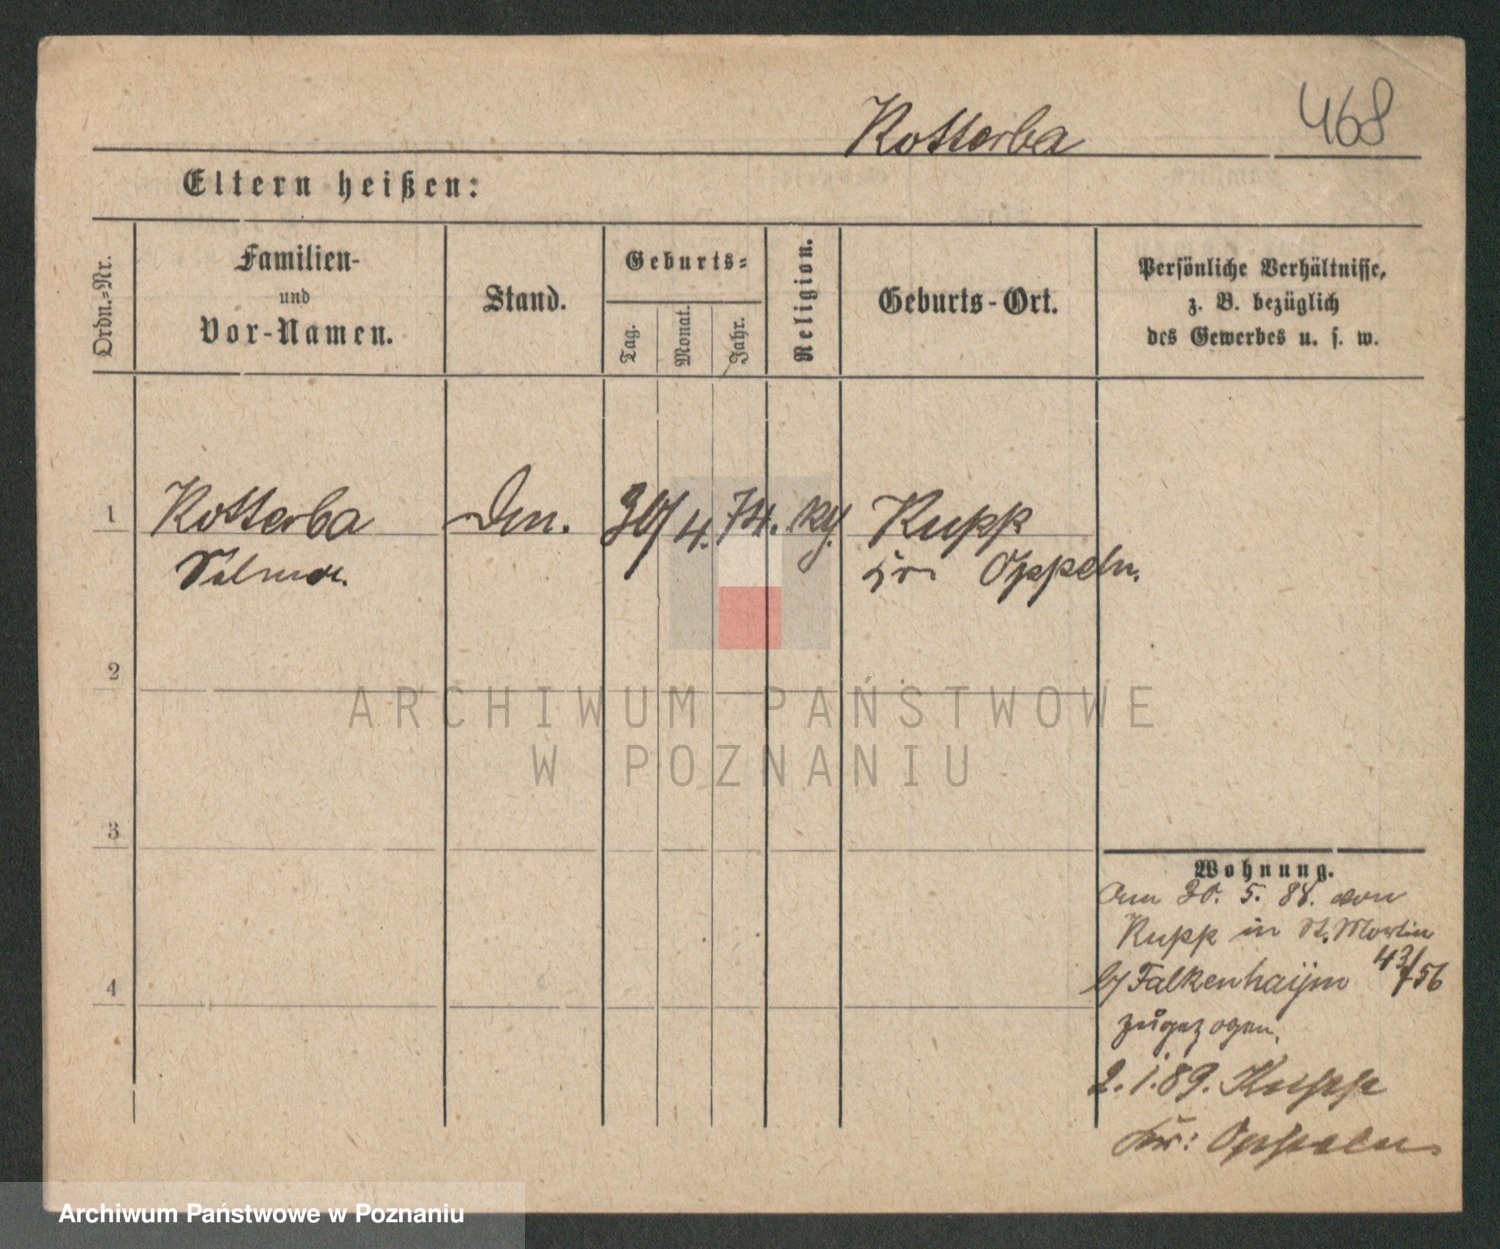 Kotterba 468
Eltern heißen:
Ordn.-Nr.
Familien-
und
Vor-Namen.
Stand.
Geburts-
Tag. Monat. Jahr.
Religion.
Geburts-Ort.
Persönliche Verhältnisse,
z. B. bezüglich
des Gewerbes u. s. w.
1 Kotterba 30/4. 74. Kupp
Selma. Oppeln.
2
3
4
Wohnung.
am 30. 5. 88. von
Kupp in St. Martin
b/ Falkenhaijm 43/56
zugezogen.
2. 1. 89. Kupp
Kr: Oppeln.
ARCHIWUM PAŃSTWOWE
W POZNANIU
Archiwum Państwowe w Poznaniu